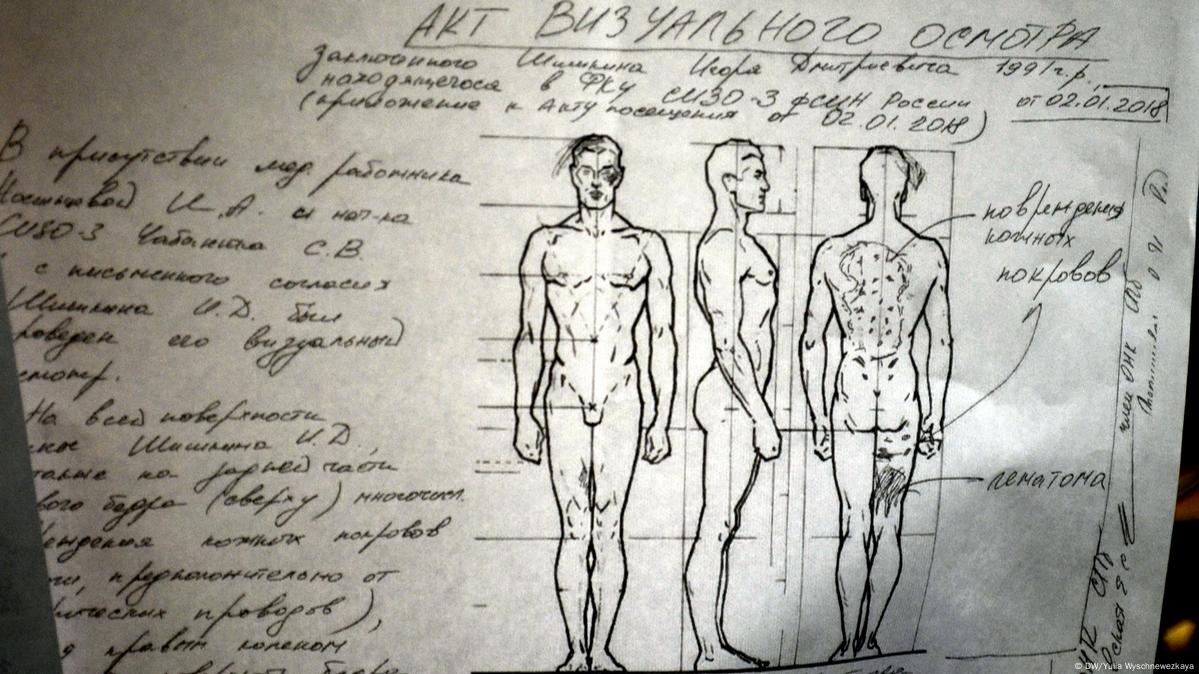 АКТ ВИЗУАЛЬНОГО ОСМОТРА
заключенного Шишкина Игоря Дмитриевича 1991 г.р.,
находящегося в ФКУ СИЗО-3 ФСИН России
(приложение к Акту посещения от 02.01.2018)
от 02.01.2018
В присутствии мед работника
И.А. и нач-ка
СИЗО-3 С.В.
с письменного согласия
Шишкина И.Д. был
роведен его визуальный
смотр.
На всей поверхности
Шишкина И.Д.,
также на задней части
вого бедра (сверху) многочисл.
ждения кожных покровов
ги, предположительно от
рических проводов),
д правым коленом
бедра
повреждения
кожных
покровов
гематома
член ОНК СПб
ОНК СПб
© DW/Yulia Wyschnewezkaya